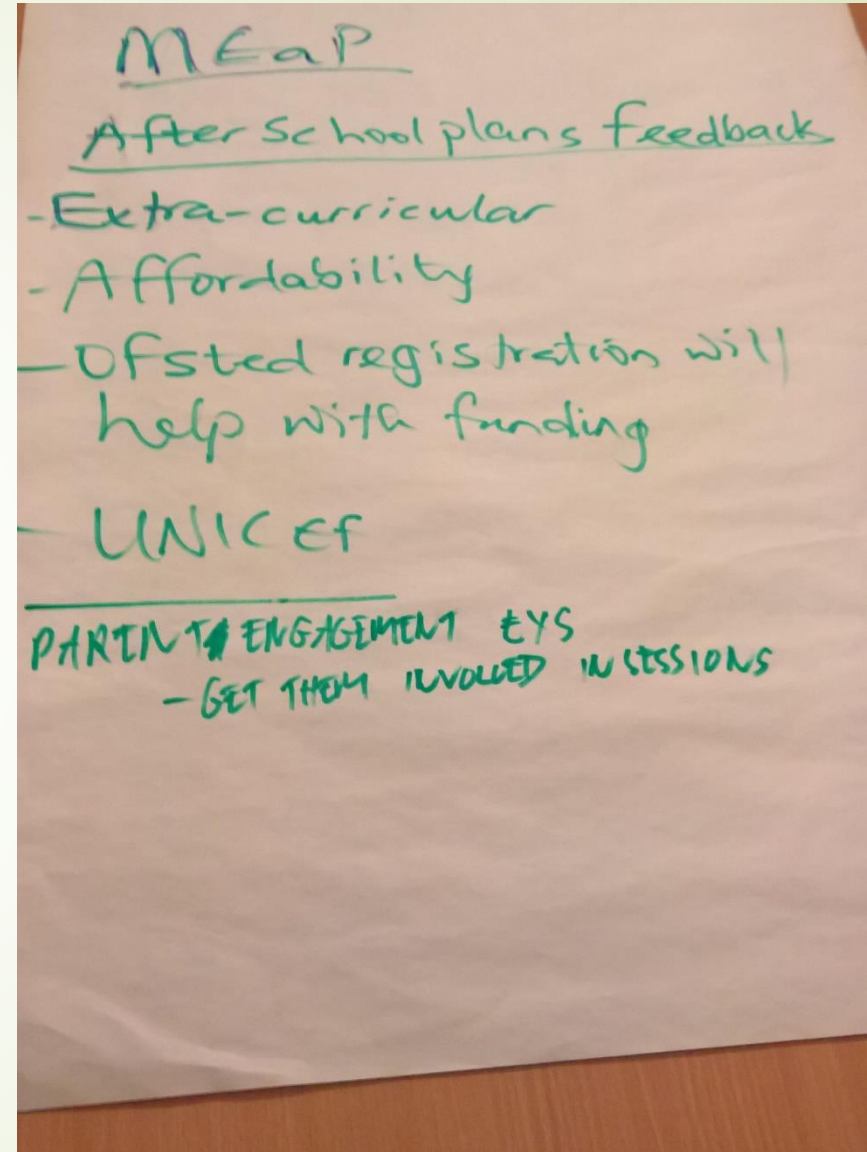 MEaP
After School plans feedback
- Extra-curricular
- Affordability
- Ofsted registration will
help with funding
- UNICEf
PARENT ENGAGEMENT EYS
- GET THEM INVOLVED IN SESSIONS